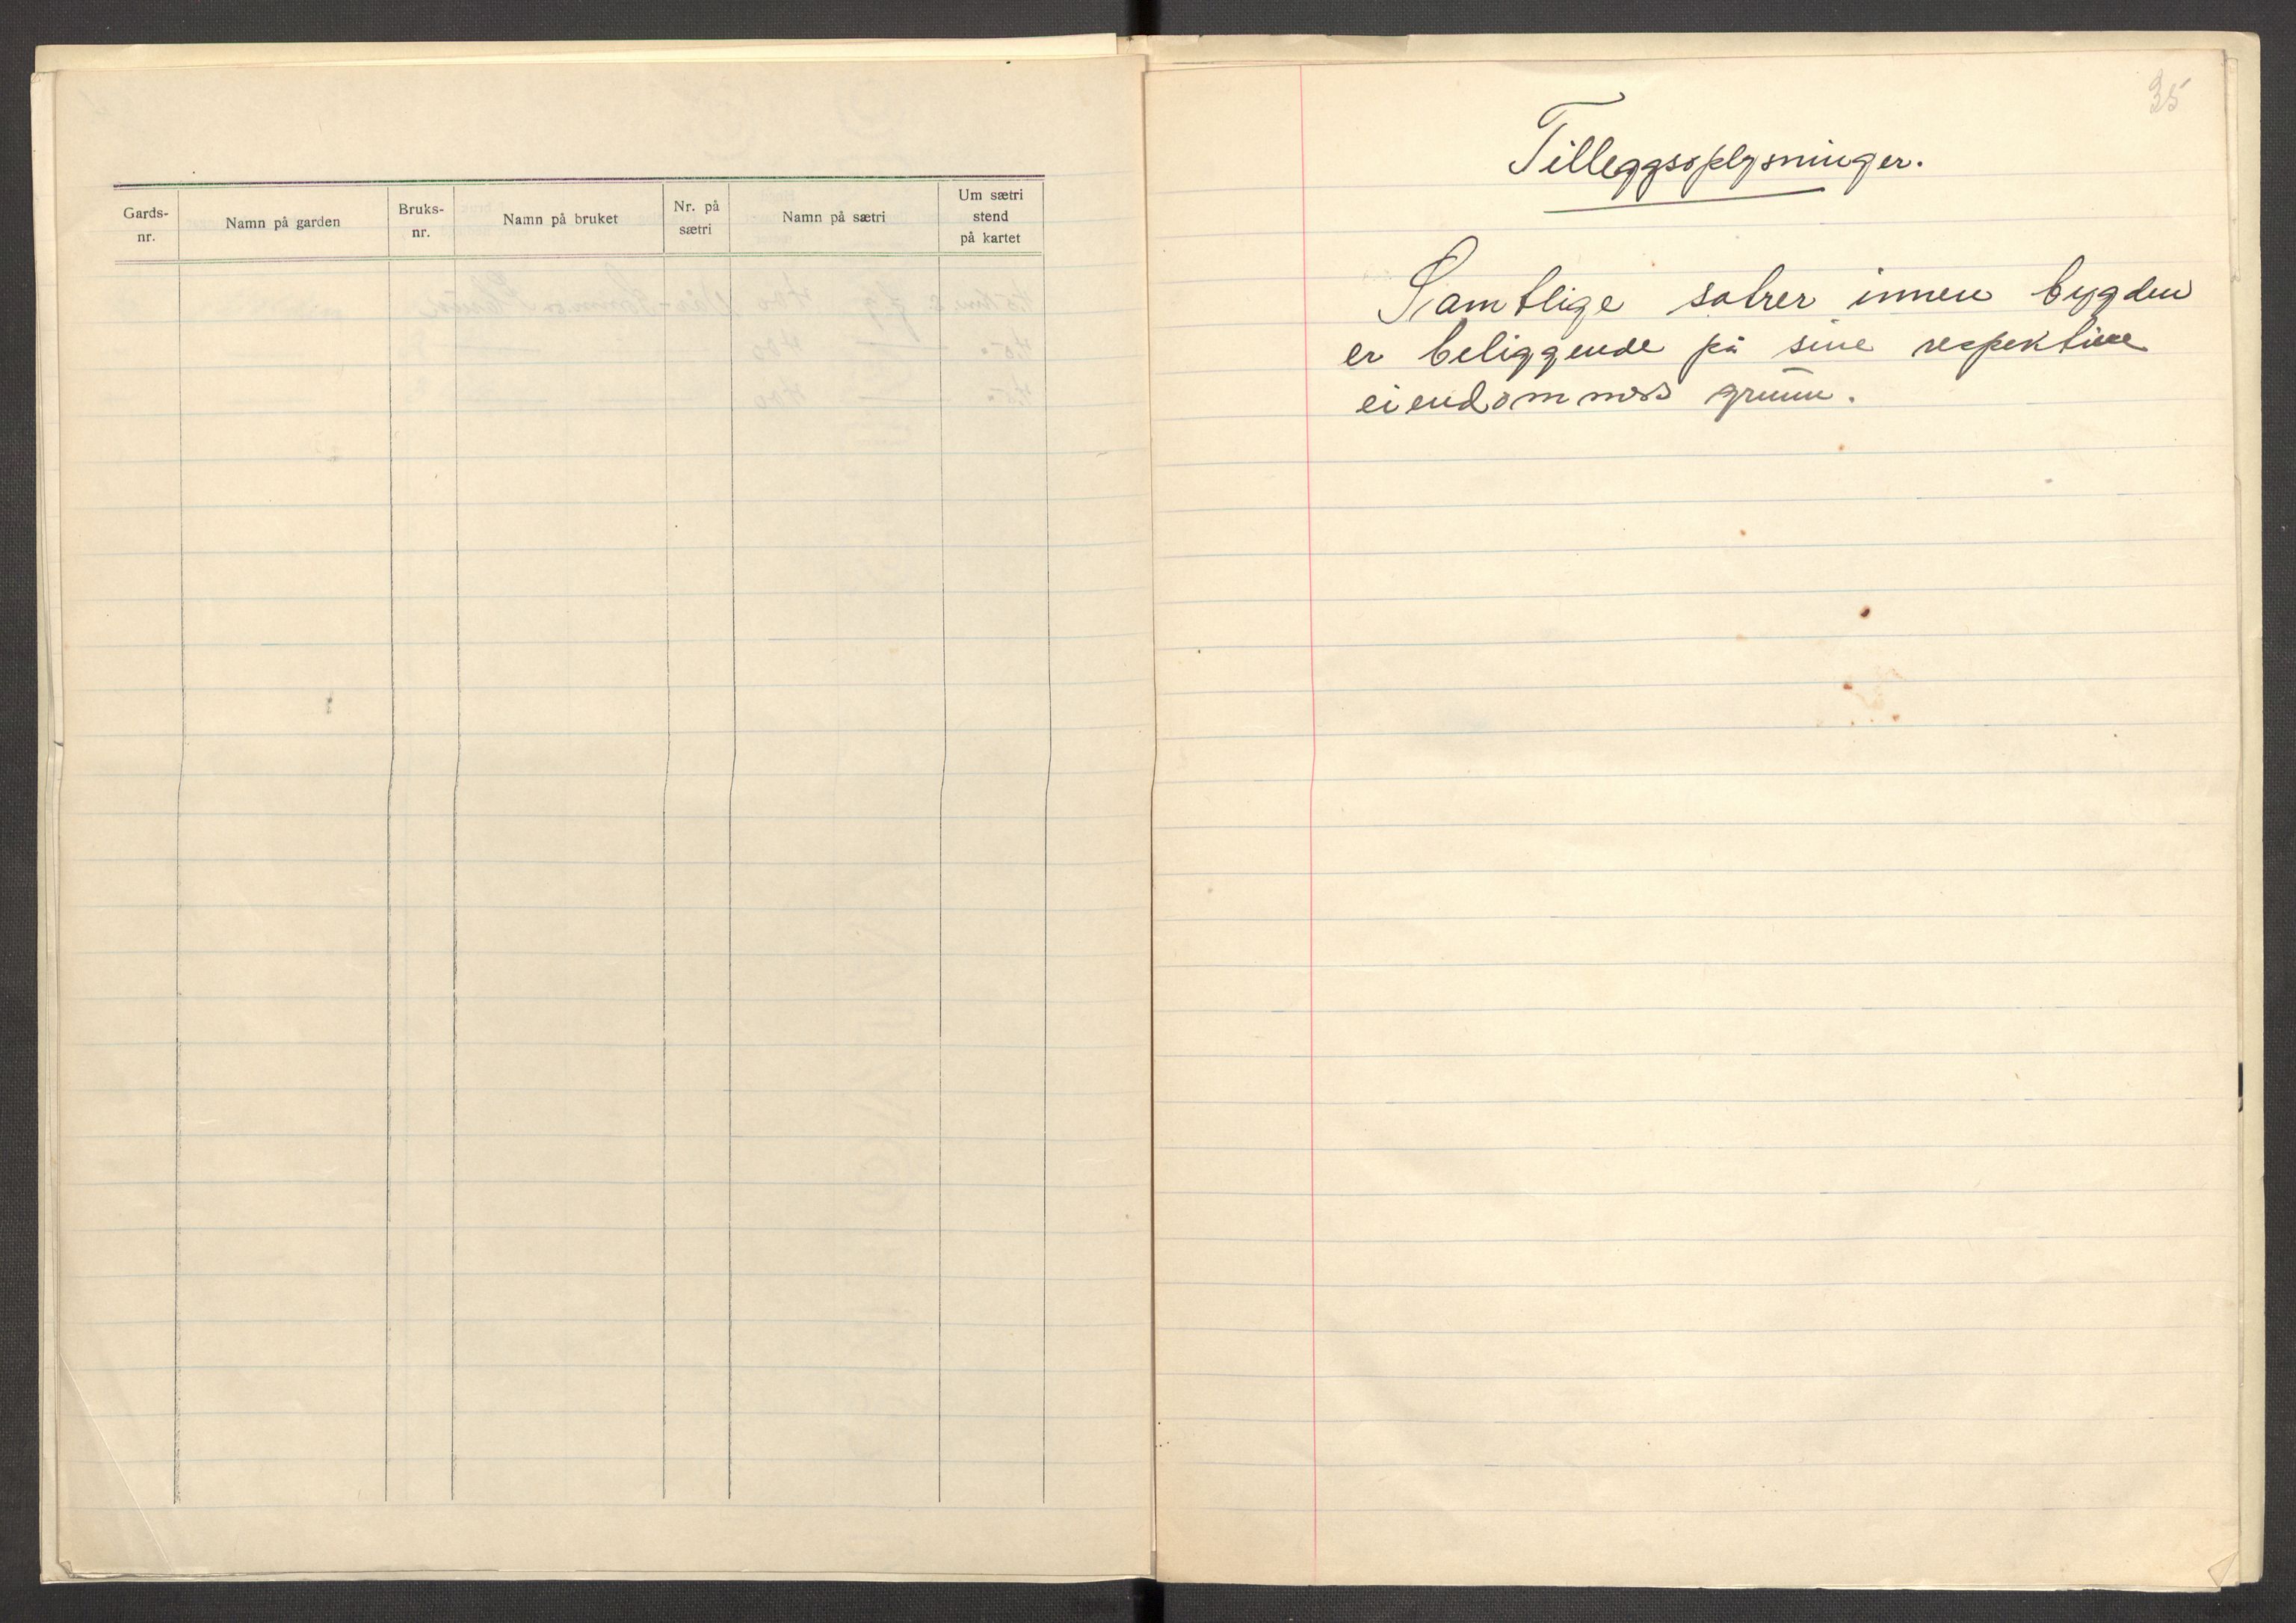 Gards-
nr.
Namn på garden
Bruks-
nr.
Namn på bruket
Nr. på
sætri
Namn på sætri
Um sætri
stend
på kartet
35
Tilleggsoplysninger.
Samtlige sætrer innen bygden
er beliggende på sine respektive
eiendommers grunn.